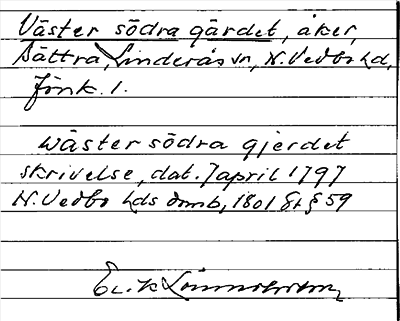 Väster södra gärdet, åker,
Sättra, Linderås sn, N. Vedbo hd,
Jönk. l.
wäster södra gjerdet
skrivelse, dat. 7 april 1797
N. Vedbo hds domb, 1801 Ht § 59
Erik